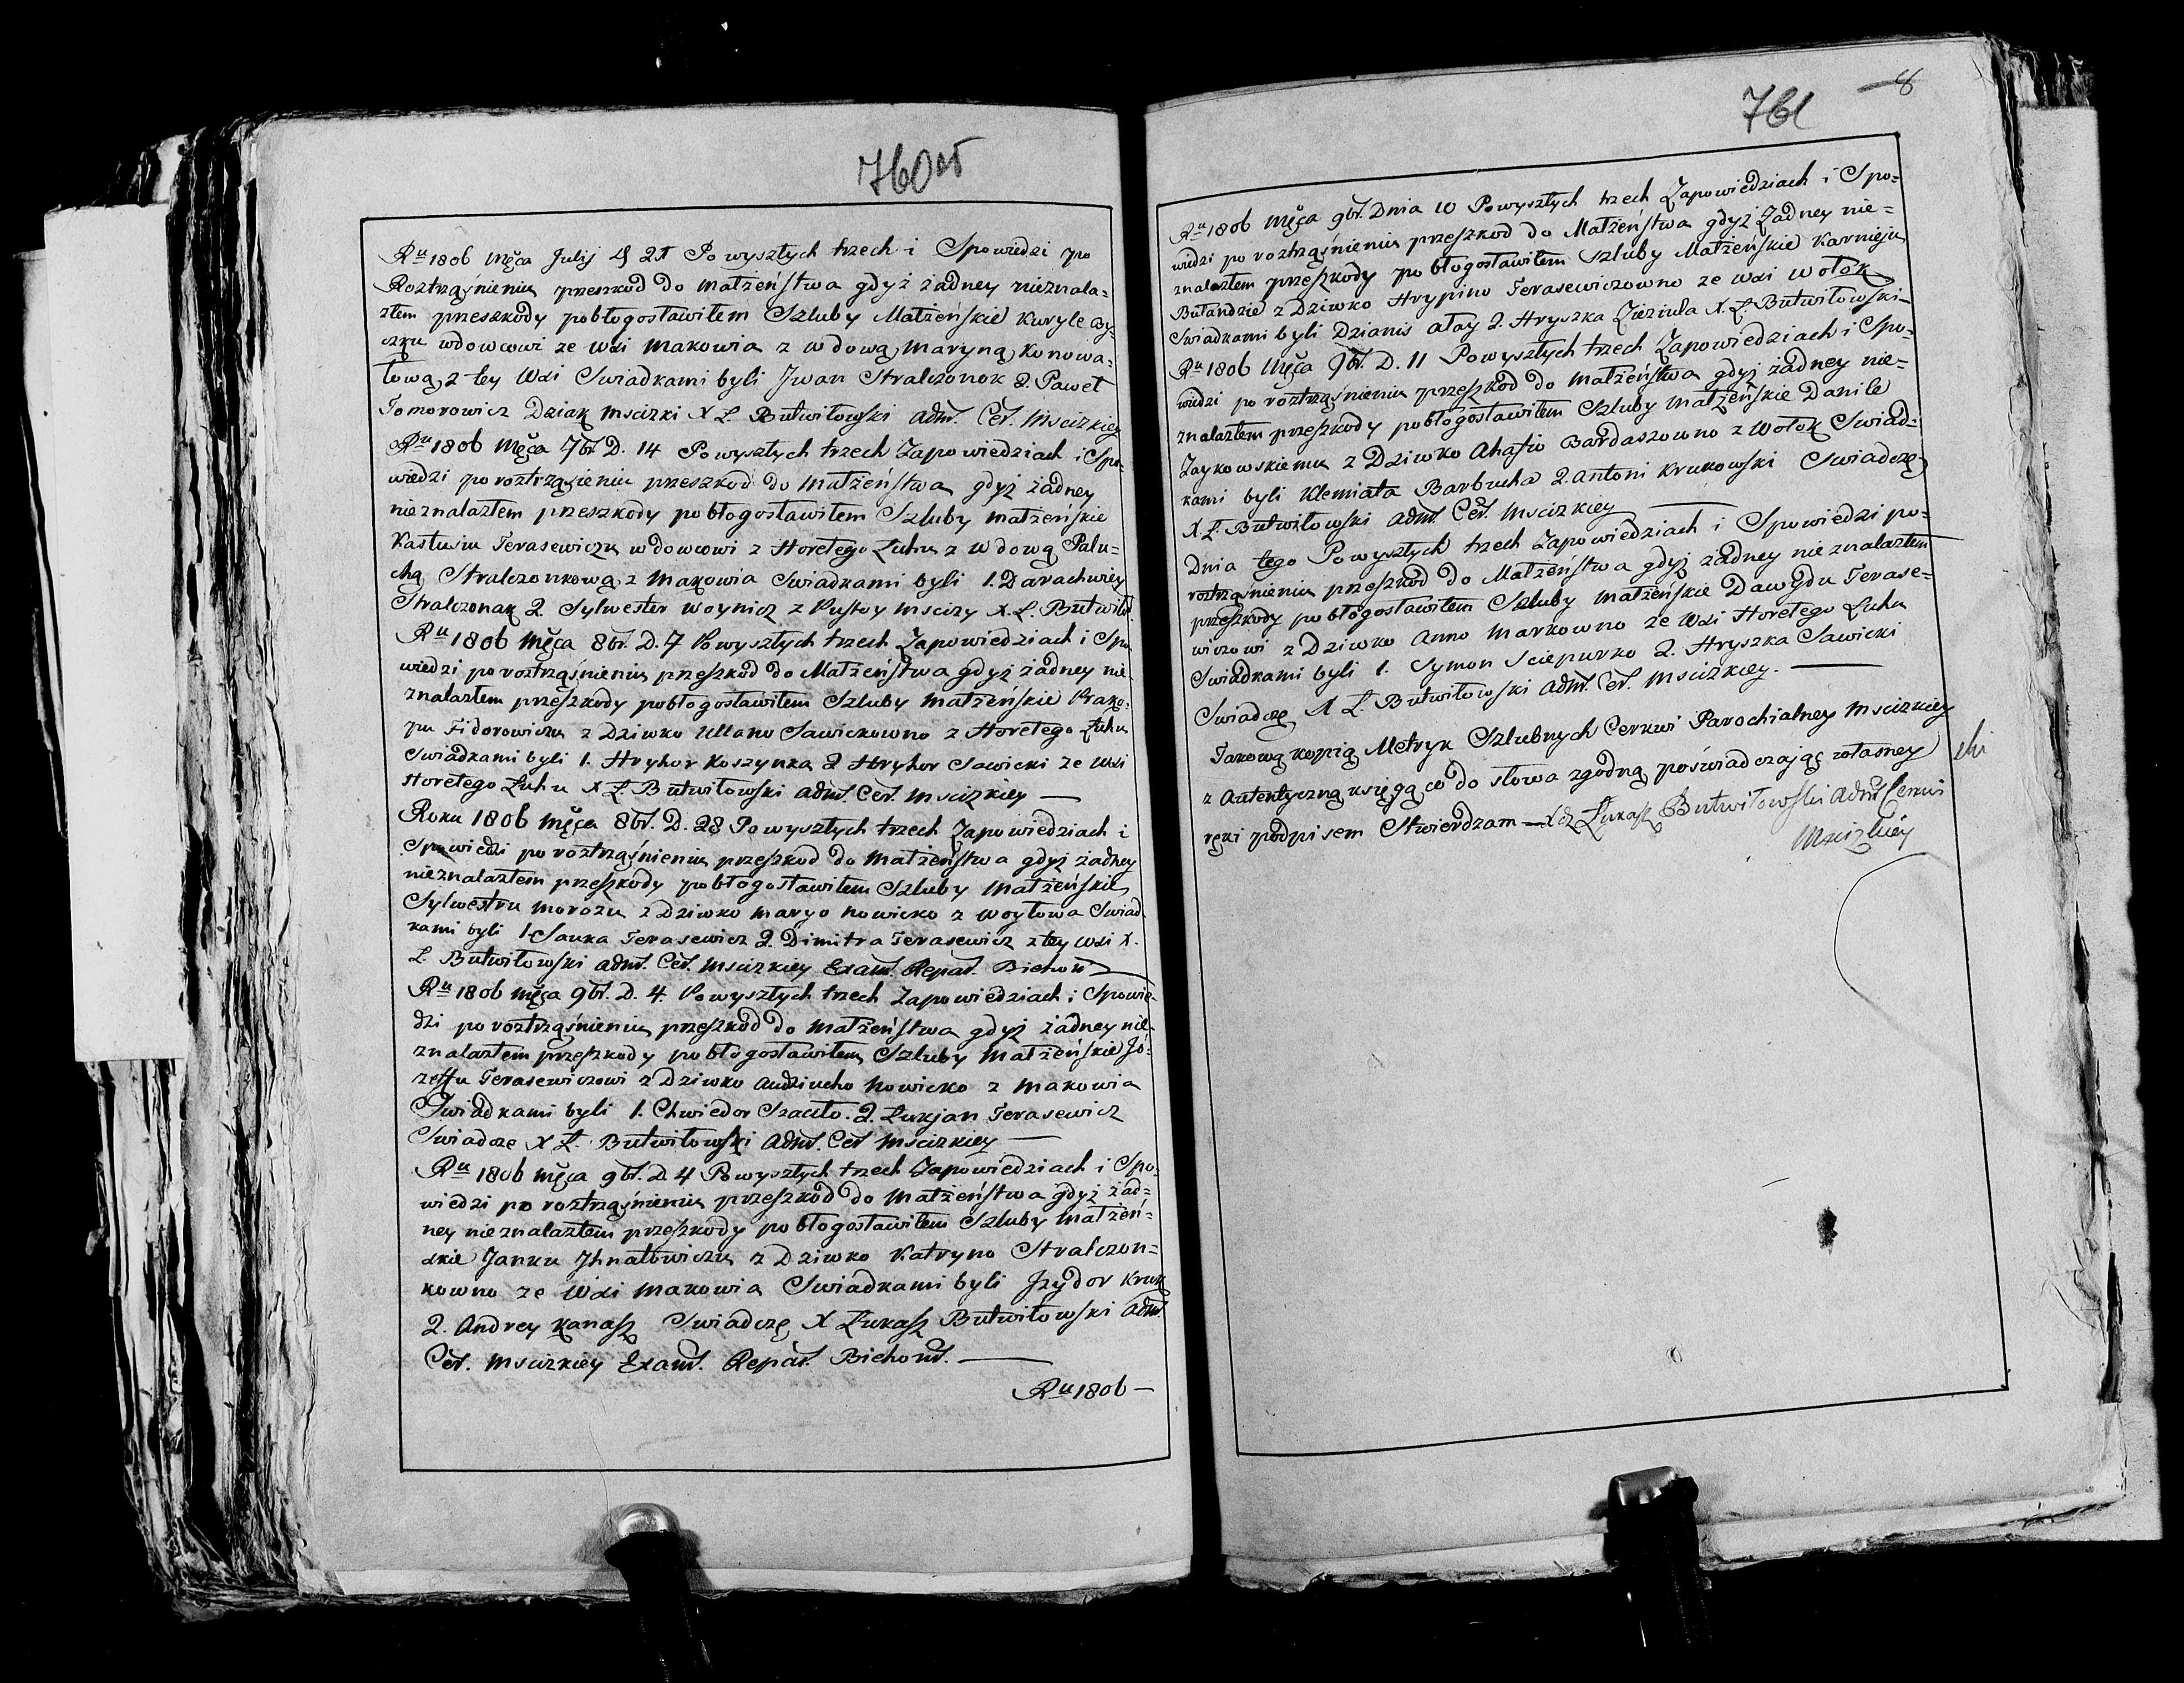 760об
Ru 1806 Męca Julij D 21 Powyszłych trzech i Spowiedzi po
Roztrząśnieniu przeszkod do małżeństwa gdyż żadney nieznala=
złem przeszkody pobłogosławiłem Szluby Małżeńskie Kuryle By=
czku wdowcowi ze Wsi Makowia z wdową Maryną Konowa=
łową z tey Wsi Swiadkami byli Jwan Stralczonok 2. Paweł
Tomorowicz Dziak Mscizki X Ł. Butwiłowski Adm. Cer. Mscizkiey
Ru 1806 Męca 7br D. 14 Powyszłych trzech Zapowiedziach i Spo=
wiedzi po roztrząsieniu przeszkod do małżeństwa gdyż żadney
nieznalazłem przeszkody pobłogosławiłem Szluby małżeńskie
Kastusiu Terasewiczu wdowcowi z Horełego Łuhu z wdową Palu=
chą Stralczonkową z Makowia Swiadkami byli 1. Darachwiey
Stralczonak 2. Sylwester Woynicz z Pustoy Mscizy X. Ł. Butwiło
Ru 1806 Męca 8br. D. 7 Powyszłych trzech Zapowiedziach i Spo=
wiedzi po roztrząśnieniu przeszkod do Małżeństwa gdyż żadney nie=
znalazłem przeszkody pobłogosławiłem Szluby Małżeńskie Prako=
pu Fidorowiczu z Dziwko Ullano Sawickowno z Horełego Łuhu
Swiadkami byli 1. Hryhor Koszynka 2 Hryhor Sawicki ze Wsi
Horełego Łuhu X Ł Butwiłowski Adm. Cer. Mscizkiey —
Roku 1806 Męca 8br. D. 28 Powyszłych trzech Zapowiedziach i
Spowiedzi po roztrząśnieniu przeszkod do małżeństwa gdyż żadney
nieznalazłem przeszkody pobłogosławiłem Szluby Małżeńskie
Sylwestru Morozu z Dziwko Maryo Nowicko z Woytowa Swiad=
kami byli 1. Sauka Terasewicz 2. Dimitra Terasewicz z tey Wsi X.
Ł. Butwiłowski Adm. Cer. Mscizkiey Exam. Repar. Biehom
Ru 1806 Męca 9br. D. 4. Powyszłych trzech Zapowiedziach i Spowie=
dzi po roztrząśnieniu przeszkod do małżeństwa gdyż żadney nie=
znalazłem przeszkody pobłogosławiłem Szluby Małżeńskie Jó=
zeffu Terasewiczowi z Dziwko Audziucho Nowicko z Makowia
Swiadkami byli 1. Chwiedor Szacilo. 2. Łukjan Terasewicz
Swiadczę X Ł. Butwiłowski Adm. Cer Mscizkiey —
Ru 1806 Męca 9br. D. 4 Powyszłych trzech Zapowiedziach i Spo=
wiedzi po roztrząśnieniu przeszkod do Małżeństwa gdyż żad=
ney nieznalazłem przeszkody pobłogosławiłem Szluby Małżeń=
skie Janku Jhnatowiczu z Dziwko Katryno Stralczon=
kowno ze Wsi Makowia Swiadkami byli Jzydor Kruk
2. Andrey Kanasz Swiadczę X Łukasz Butwiłowski Adm.
Cer. Mscizkiey Exam. Repar. Biehom. —
Ru 1806 —
761
8
Ru 1806 Męca 9br. Dnia 10 Powyszłych trzech Zapowiedziach i Spo=
wiedzi po roztrząśnieniu przeszkod do Małżeństwa gdyż żadney nie=
znalazłem przeszkody pobłogosławiłem Szluby Małżeńskie Karnieju
Butandzie z Dziwko Hrypino Terasewiczowno ze Wsi Wołok
Swiadkami byli Dzianis Ałay 2. Hryszka Zieziula X. Ł. Butwiłowski
Ru 1806 Męca 9br. D. 11 Powyszłych trzech Zapowiedziach i Spo=
wiedzi po roztrząśnieniu przeszkod do Małżeństwa gdyż żadney nie=
znalazłem przeszkody pobłogosławiłem Szluby Małżeńskie Danile
Zaykowskiemu z Dziwko Ahafio Bardaszowno z Wołok Swiad=
kami byli Klemiata Barbucha 2. Antoni Krukowski Swiadczę
X Ł. Butwiłowski Adm. Cer. Mscizkiey —
Dnia tego Powyszłych trzech Zapowiedziach i Spowiedzi po=
roztrząśnieniu przeszkod do Małżeństwa gdyż żadney nie znalazłem
przeszkody pobłogosławiłem Szluby Małżeńskie Dawydu Terase=
wiczowi z Dziwko Anno Markowno ze Wsi Horełego Łuhu
Swiadkami byli 1. Symon Sciepurko 2. Hryszka Sawicki
Swiadczę X Ł. Butwiłowski Adm. Cer. Mscizkiey. —
Takową kopią Metryk Szlubnych Cerkwi Parochialney Mscizkiey
z Autentyczną księgą co do słowa zgodną poświadczając własney
ręki podpisem Stwierdzam — Xdz Łukasz Butwiłowski Adm Cerkwi
Mscizkiey